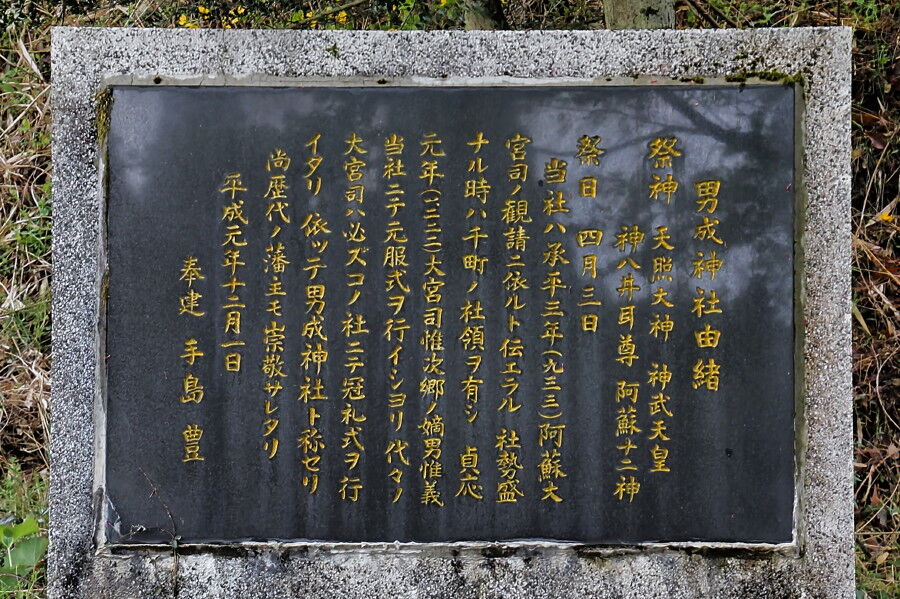 男成神社由緒
祭神 天照大神 神武天皇
神八井耳尊 阿蘇十二神
祭日 四月三日
当社ハ承平三年(九三三)阿蘇大
宮司ノ観請ニ依ルト伝エラル 社勢盛
ナル時ハ千町ノ社領ヲ有シ 貞応
元年(一二二二)大宮司惟次郷ノ嫡男惟義
当社ニテ元服式ヲ行イシヨリ 代々ノ
大宮司ハ必ズコノ社ニテ冠礼式ヲ行
イタリ 依ッテ男成神社ト称セリ
尚歴代ノ藩主モ崇敬サレタリ
平成元年十二月一日
奉建 手島 豊